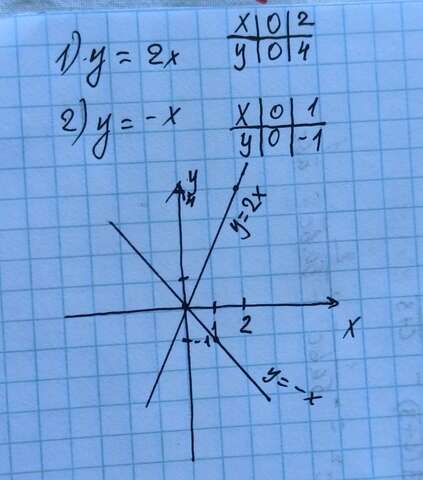 1) y = 2x
x | 0 | 2
y | 0 | 4
2) y = -x
x | 0 | 1
y | 0 | -1
y
4
y=2x
1 2
x
-1
y=-x